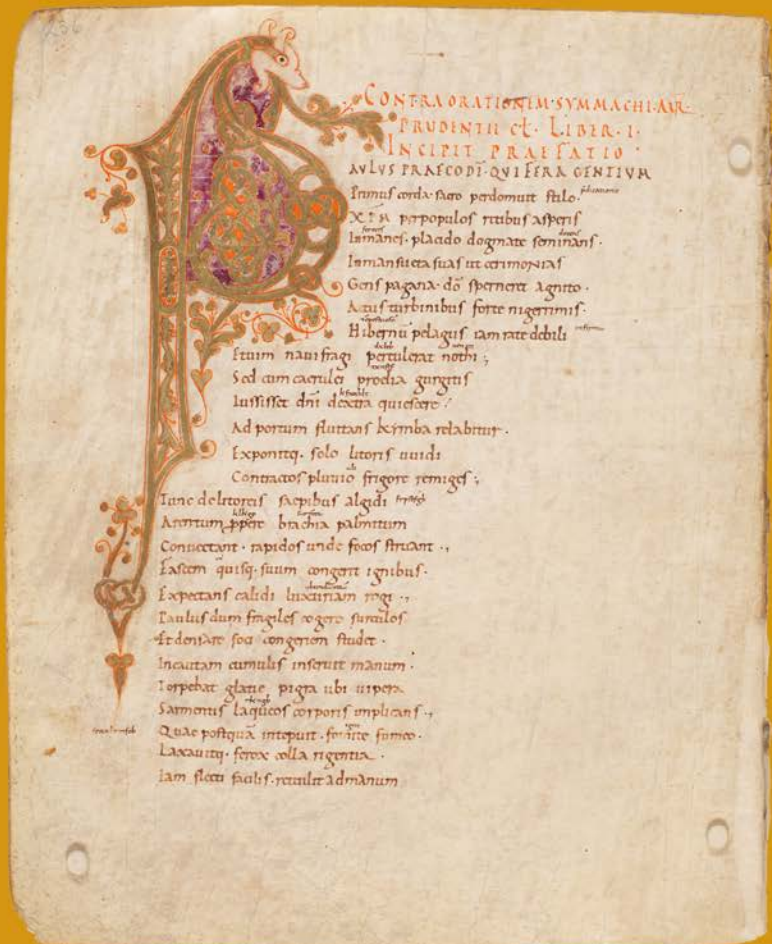 CONTRA ORATIONEM·SYMMACHI·AUR
PRUDENTII CL· LIBER·I·
INCIPIT PRAEFATIO·
AVLVS PRAECO DI·QVI FERA GENTIVM
Primus corda·sacro perdomuit stilo·
XPM perpopulos ritibus asperis
Inmanes·placido dogmate seminans·
Inmansueta suas ut cerimonias
Gens pagana·do sperneret agnito·
Actus turbinibus forte nigerrimis·
Hibernu pelagus iam rate debili
Et uim naui fragi pertulerat nothi;
Sed cum caerulei proelia gurgitis
Iussisset dni dextra quiescere·
Ad portum fluitans kymba relabitur·
Exponitq· solo litoris uuidi
Contractos pluuio frigore remiges;
Tunc delitoreis saepibus algidi
Arentum ppere brachia palmitum
Conuectant·rapidos unde focos struant·,
Fascem quisq·suum congerit ignibus·
Expectans calidi luxuriam rogi·,
Paulus dum fragiles cogere surculos
Et densare foci congeriem studet·
Incautam cumulis inseruit manum·
Torpebat glacie pigra ubi uipera
Sarmentis laqueos corporis inplicans·,
Quae postquā intepuit·fomite fumeo·
Laxauitq·ferox colla rigentia·
Iam flecti facilis·retulit ad manum